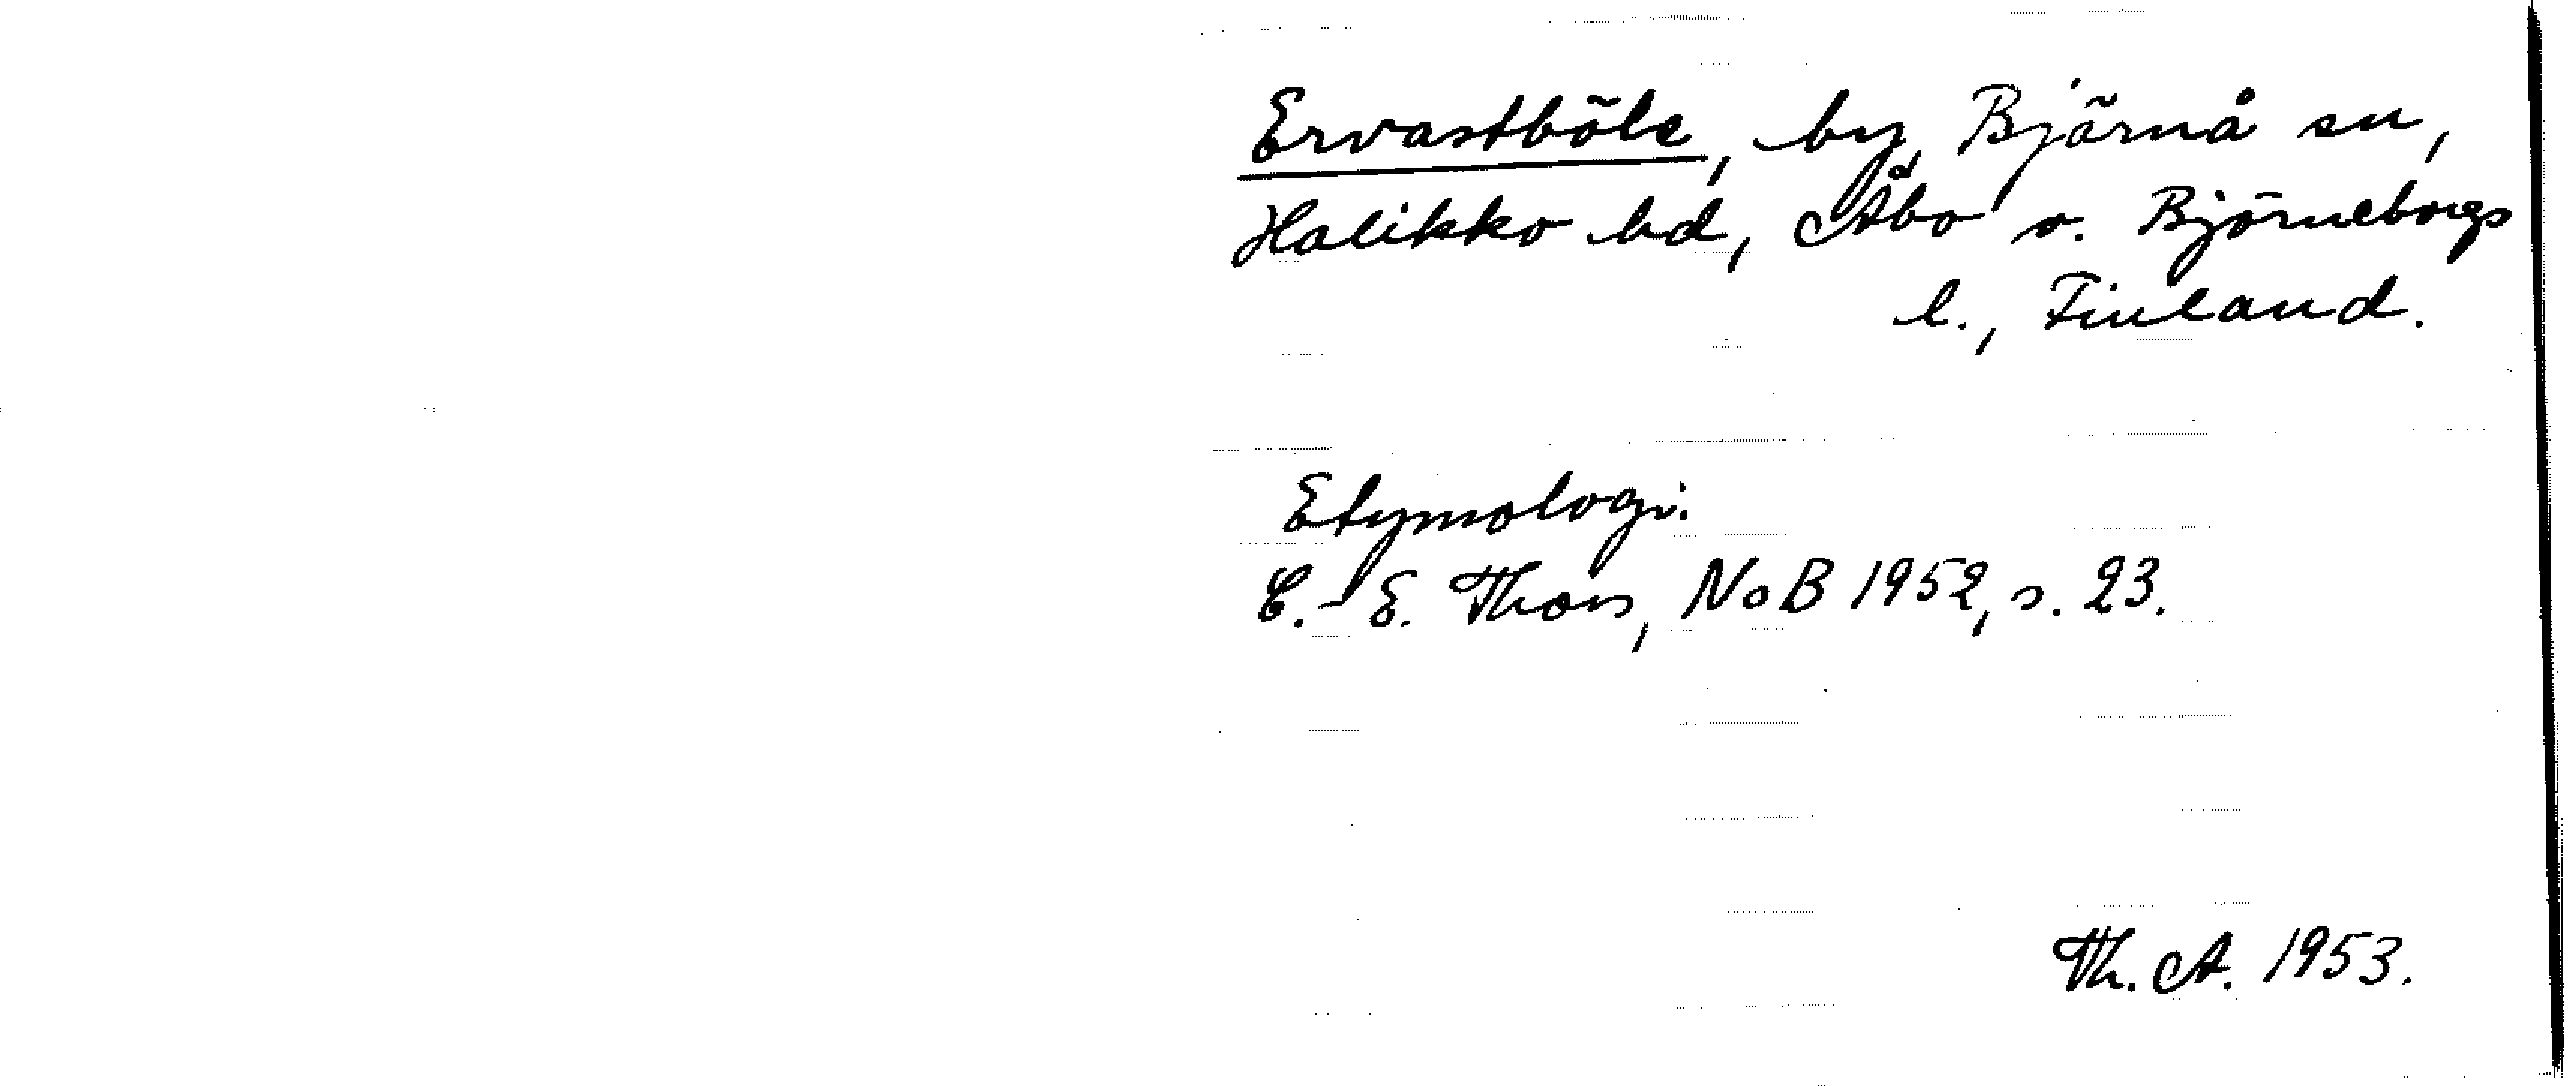 Ervastböle, by, Bjärnå sn,
Halikko hd, Åbo o. Björneborgs
l., Finland.
Etymologi.
C.-E. Thors, NoB 1952, s. 23.
Th. A. 1953.